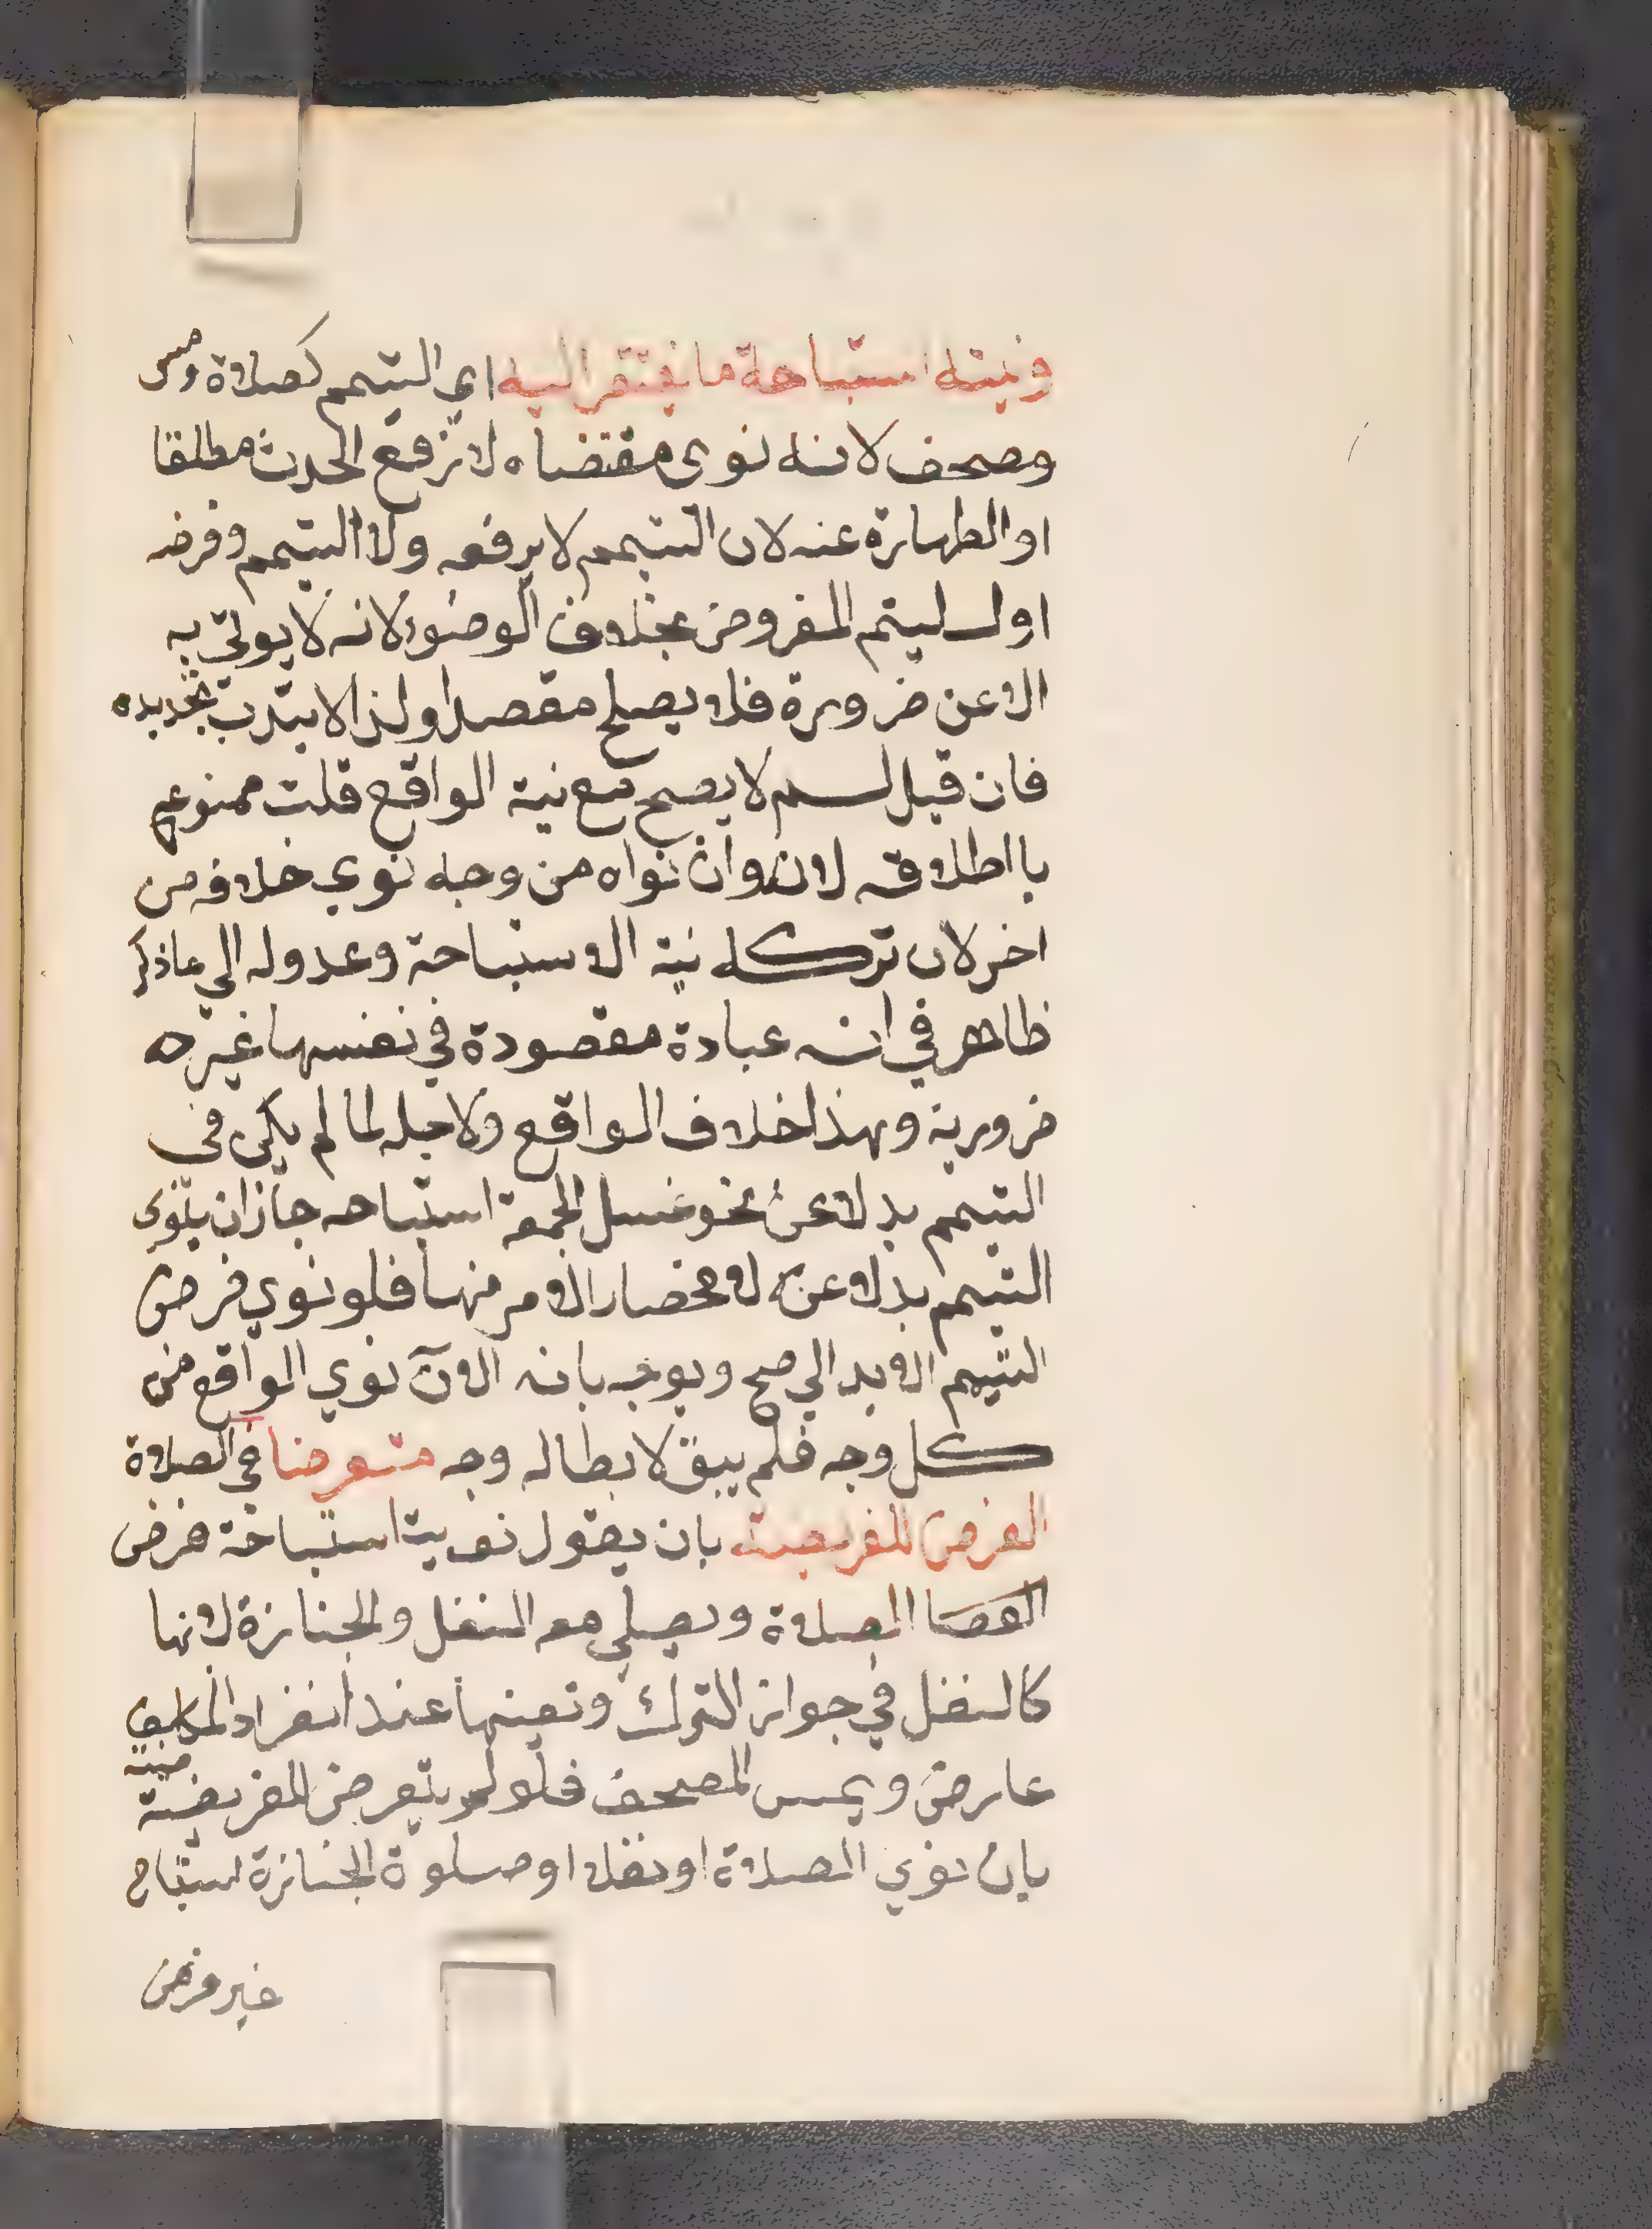 ونيته استباحة ما يفتقر اليه اي التيمم كصلاة ومس
ومصحف لانه نوى مقتضاه لا ترفع الحدث مطلقا
او الطهارة عنه لان التيمم لا يرفعه ولا التيمم وفرضه
اول ليتم المفروض بخلاف الوضوء لانه لا يوتي به
الا عن ضرورة فلا يصلح مقصدا ولذا لا يندب تجديده
فان قيل لم لا يصح مع نية الواقع قلت ممنوع
با اطلاقه لانه وان نواه من وجه نوي خلافه من
اخر لان تركه نية الاستباحة وعدوله الي ما ذكر
ظاهر في انه عبادة مقصودة في نفسها غير
ضرورية وهذا خلاف الواقع ولاجله لما لم يكن في
التيمم بدلا عن نحو غسل الجمعة استباحه جاز ان ينوي
التيمم بدلا عنه لا نحصار الامر منها فلو نوي فرض
التيمم الا بدالي صح ويوجه بانه الآن نوي الواقع من
كل وجه فلم يبق لابطاله وجه متعرضا في الصلاة
الفرض للفريضة بان يقول نويت استباحة فرض
الصلاة ويصلي معه النفل والجنازة لانها
كالنفل في جواز الترك وتعينها عند انفراد المكلف
عارض ويمس المصحف فلو لم يتعرض للفريضة
بان نوي الصلاة او نفلا او صلوة الجنازة استباح
غير فرض